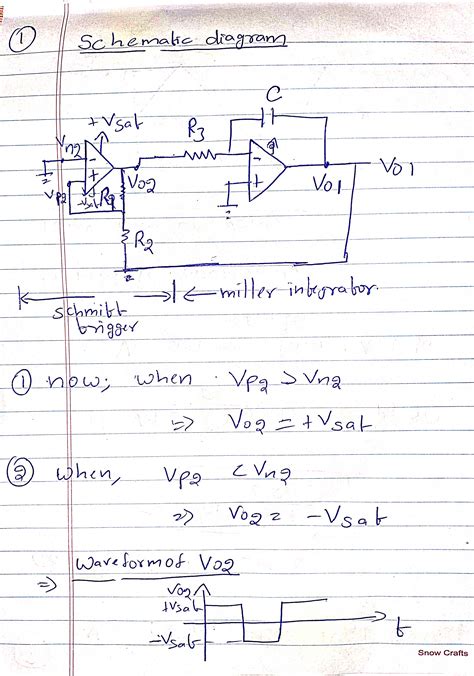 ① Schematic diagram
C
+Vsat
R3
Vn2
-
+
Vo2
Vp2
-Vsat
R2
-
+
Vo1
Vo1
schmitt trigger
miller integrator.
① now; when Vp2 > Vn2
=> Vo2 = +Vsat
② when, Vp2 < Vn2
=> Vo2 = -Vsat
=> waveform of Vo2
Vo2
+Vsat
-Vsat
t
Snow Crafts